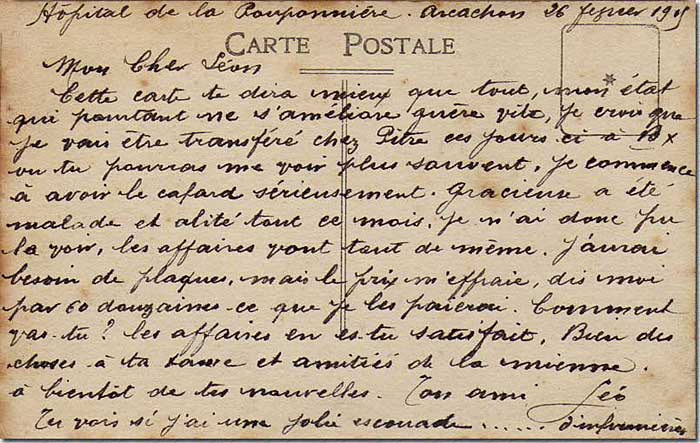 Hôpital de la Pouponnière. Arcachon 26 fevrier 1915
CARTE POSTALE
Mon Cher Léon
Cette carte te dira mieux que tout, mon état
qui pourtant ne s'améliore guère vite, je crois que
je vais être transféré chez Pitre ces jours ci à Bx
ou tu pourras me voir plus souvent, je commence
à avoir le cafard sérieusement. Gracieuse a été
malade et alité tout ce mois, je n'ai donc pu
la voir, les affaires vont tout de même. J'aurai
besoin de plaques, mais le prix m'effraie, dis moi
par 60 douzaines ce que je les paierai. Comment
vas-tu? les affaires en es-tu satisfait, Bien des
choses à ta dame et amitiés de la mienne
à bientôt de tes nouvelles. Ton ami Léo
Tu vois si j'ai une jolie escouade ...... d'infirmières